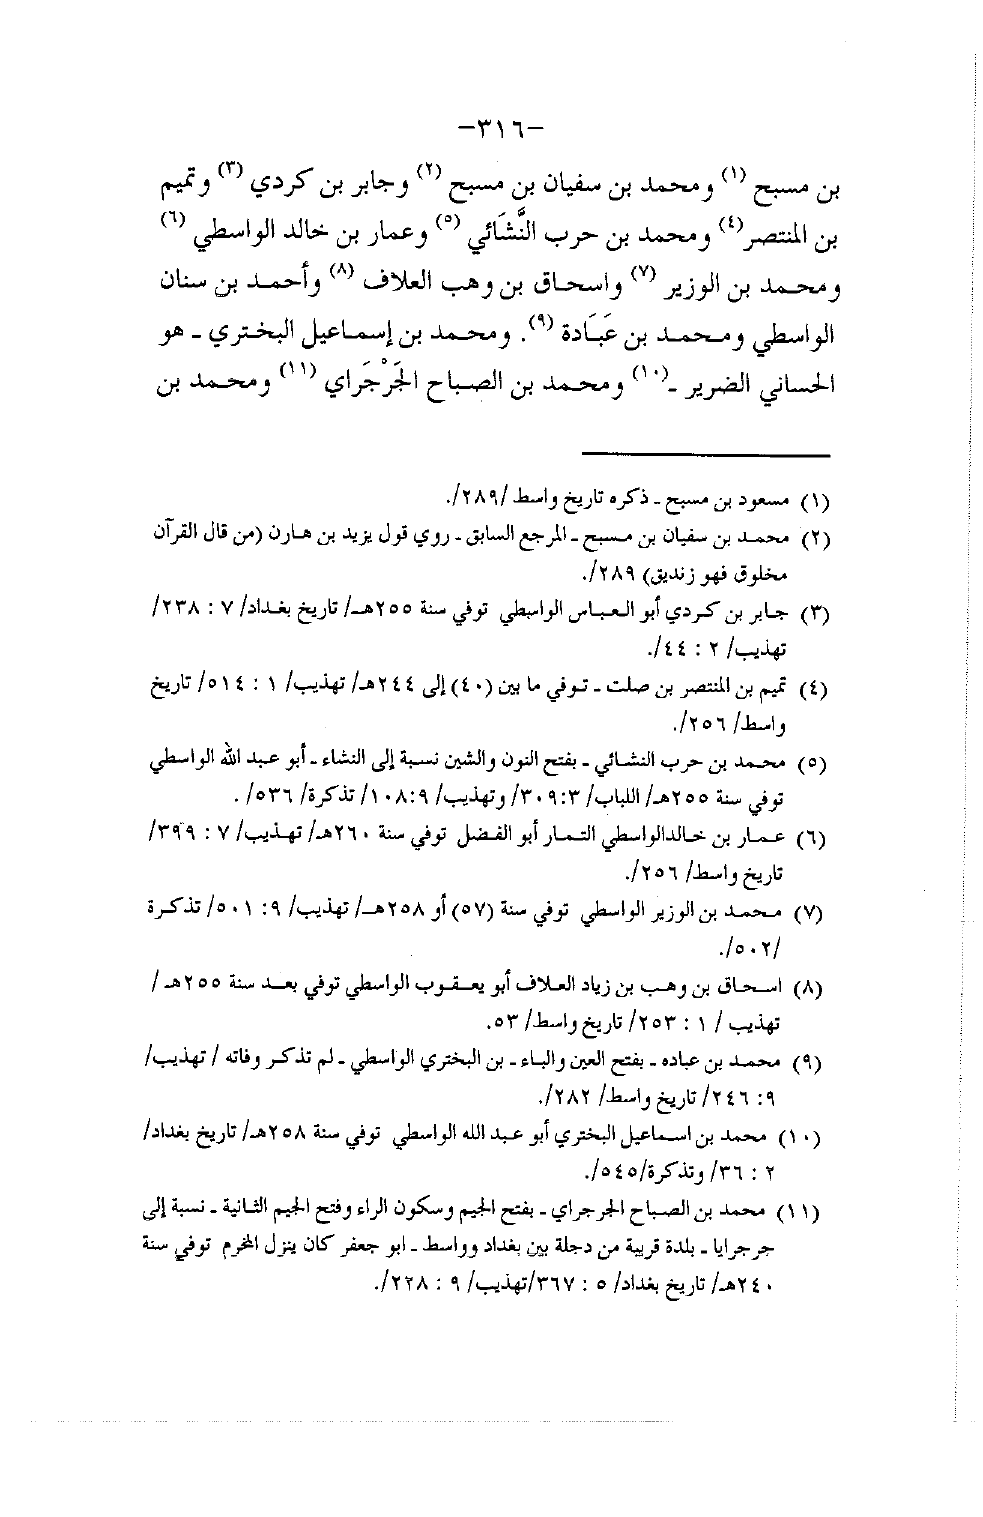 -٣١٦-
بن مسبح (١) ومحمد بن سفيان بن مسبح (٢) وجابر بن كردي (٣) وتميم
بن المنتصر(٤) ومحمد بن حرب النَّشَائي (٥) وعمار بن خالد الواسطي (٦)
ومحمد بن الوزير (٧) واسحاق بن وهب العلاف (٨) وأحمد بن سنان
الواسطي ومحمد بن عَبَادة (٩). ومحمد بن إسماعيل البختري - هو
الحساني الضرير -(١٠) ومحمد بن الصباح الجَرْجَراي (١١) ومحمد بن
(١) مسعود بن مسبح - ذكره تاريخ واسط /٢٨٩/.
(٢) محمد بن سفيان بن مسبح - المرجع السابق - روي قول يزيد بن هارن (من قال القرآن
مخلوق فهو زنديق) ٢٨٩/.
(٣) جابر بن كردي أبو العباس الواسطي توفي سنة ٢٥٥هـ/ تاريخ بغداد/ ٧ : ٢٣٨/
تهذيب/ ٢ : ٤٤/.
(٤) تميم بن المنتصر بن صلت - توفي ما بين (٤٠) إلى ٢٤٤هـ/ تهذيب/ ١ : ٥١٤/ تاريخ
واسط/ ٢٥٦/.
(٥) محمد بن حرب النشائي - بفتح النون والشين نسبة إلى النشاء - أبو عبد الله الواسطي
توفي سنة ٢٥٥هـ/ اللباب/ ٣٠٩:٣/ وتهذيب/ ١٠٨:٩/ تذكرة/ ٥٣٦/ .
(٦) عمار بن خالدالواسطي التمار أبو الفضل توفي سنة ٢٦٠هـ/ تهذيب/ ٧ : ٣٩٩/
تاريخ واسط/ ٢٥٦/.
(٧) محمد بن الوزير الواسطي توفي سنة (٥٧) أو ٢٥٨هـ/ تهذيب/ ٩: ٥٠١/ تذكرة
/٥٠٢/.
(٨) اسحاق بن وهب بن زياد العلاف أبو يعقوب الواسطي توفي بعد سنة ٢٥٥هـ /
تهذيب / ١ : ٢٥٣/ تاريخ واسط/ ٥٣.
(٩) محمد بن عباده - بفتح العين والباء - بن البختري الواسطي - لم تذكر وفاته / تهذيب/
٩: ٢٤٦/ تاريخ واسط/ ٢٨٢/.
(١٠) محمد بن اسماعيل البختري أبو عبد الله الواسطي توفي سنة ٢٥٨هـ/ تاريخ بغداد/
٢ : ٣٦/ وتذكرة/٥٤٥/.
(١١) محمد بن الصباح الجرجراي - بفتح الجيم وسكون الراء وفتح الجيم الثانية - نسبة إلى
جرجرايا - بلدة قريبة من دجلة بين بغداد وواسط - ابو جعفر كان ينزل المخرم توفي سنة
٢٤٠هـ/ تاريخ بغداد/ ٥ : ٣٦٧/تهذيب/ ٩ : ٢٢٨/.